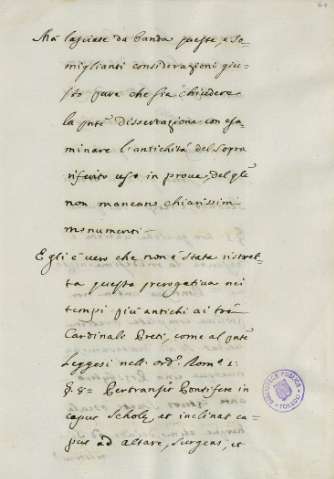 Mà lasciate da banda queste, e so-
miglianti considerazioni giu-
sto pare che sia chiudere
la pnte dissertazione con esa-
minare l'antichità del sopra
riferito uso in prova, del qle
non mancano chiarissimi
monumenti.
Egli è vero che non è stata ristret-
ta questa prerogativa nei
tempi più antichi ai trè
Cardinali Preti, come al pnte
Leggesi nell' ord. Rom. 1.
§. 8. Pertransit Pontifex in
caput Scholę, et inclinat ca-
put ad altare, surgens, et
BIBLIOTECA PUBLICA
TOLEDO